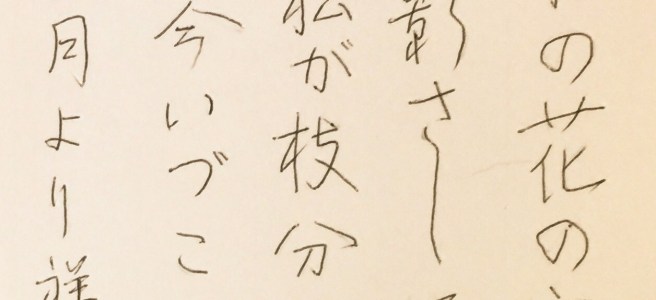 の花の
影さし
松が枝分
今いづこ
月より